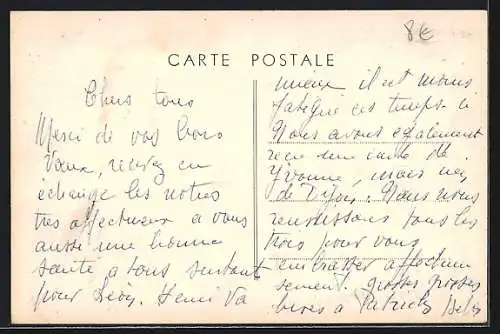 8€
CARTE POSTALE
Chers tous
Merci de vos bons
Vœux, recevez en
échange les notres
tres affectueux a vous
aussi une bonne
santé a tous surtout
pour Léon. Henri va
mieux il est moins
fatigué ces temps-ci
Nous avons également
recu une carte de
Yvonne, mais
de Dijon. Nous nous
reunissons tous les
trois pour vous
embrasser affectueu
sement. grosses grosses
bises a Patrick